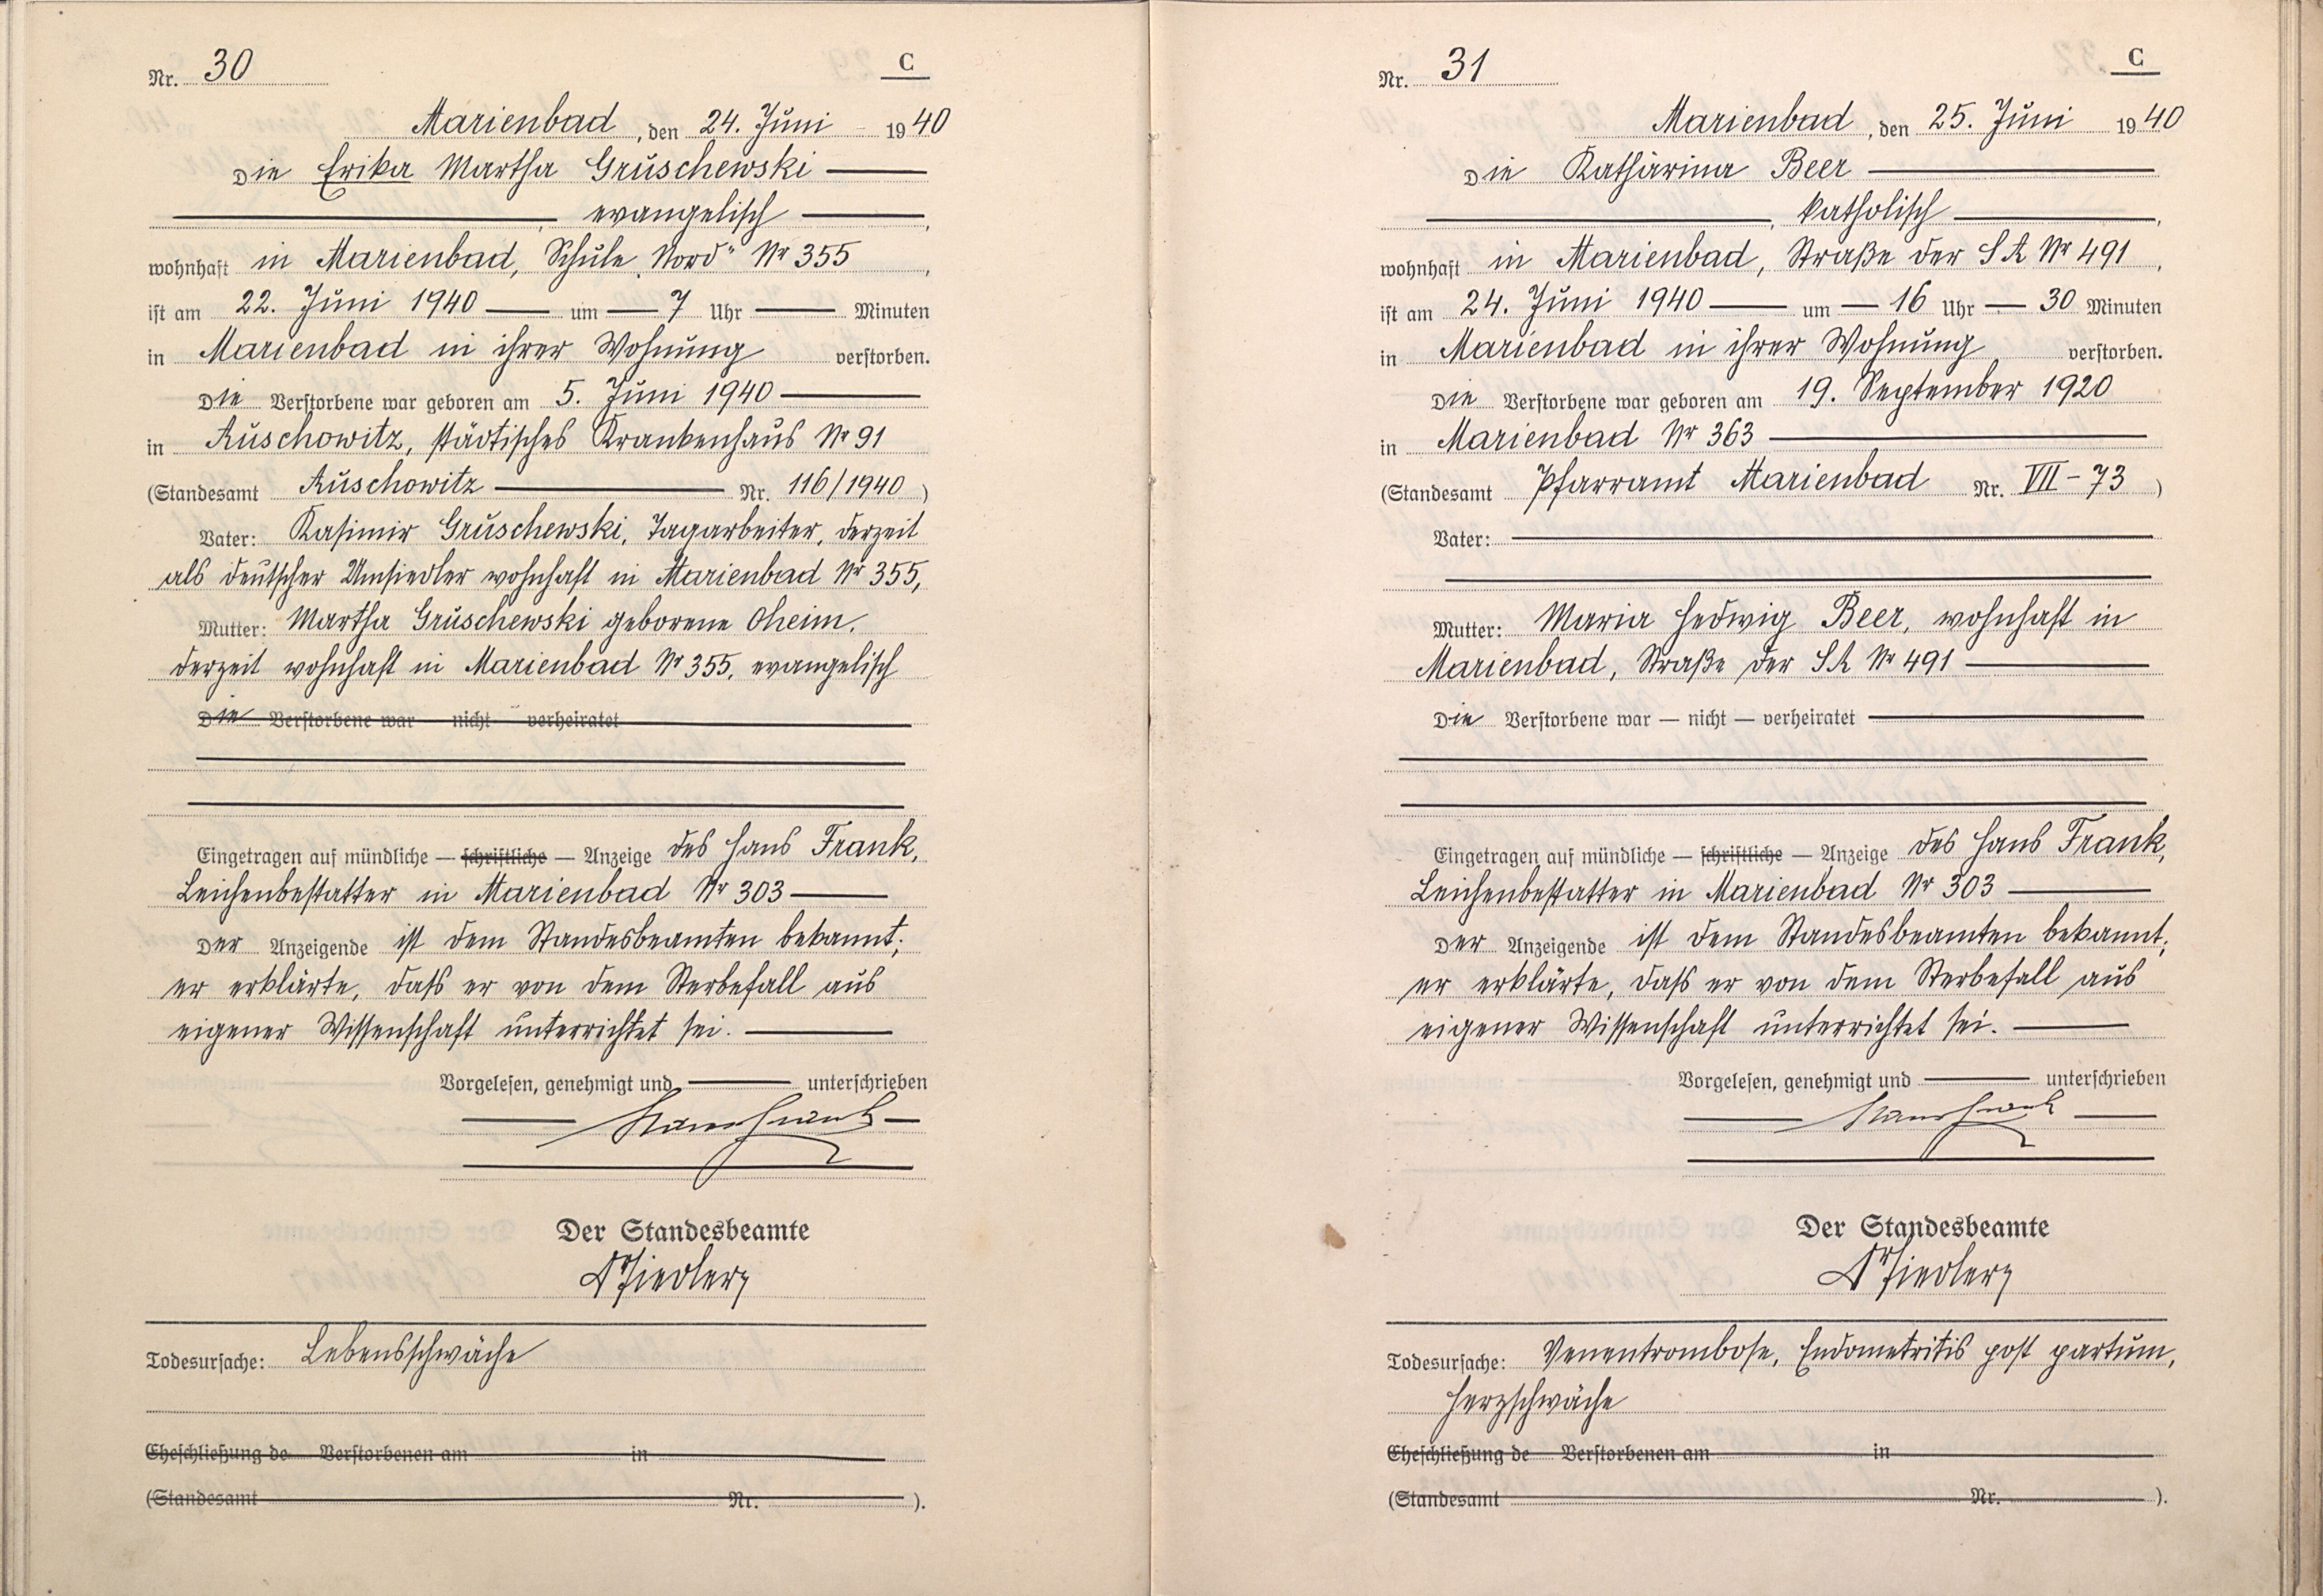 Nr. 30
C
Marienbad, den 24. Juni 1940
Die Erika Martha Gruschewski
, evangelisch,
wohnhaft in Marienbad, Schule „Nord“ Nr 355,
ist am 22. Juni 1940 um 7 Uhr Minuten
in Marienbad in ihrer Wohnung verstorben.
Die Verstorbene war geboren am 5. Juni 1940
in Auschowitz, städtisches Krankenhaus Nr 91
(Standesamt Auschowitz Nr. 116/1940)
Vater: Kasimir Gruschewski, Tagarbeiter, derzeit
als deutscher Umsiedler wohnhaft in Marienbad Nr 355,
Mutter: Martha Gruschewski geborene Oheim,
derzeit wohnhaft in Marienbad Nr 355, evangelisch
Die Verstorbene war — nicht — verheiratet
Eingetragen auf mündliche — schriftliche — Anzeige des Hans Frank,
Leichenbestatter in Marienbad Nr 303
Der Anzeigende ist dem Standesbeamten bekannt;
er erklärte, daß er von dem Sterbefall aus
eigener Wissenschaft unterrichtet sei.
Vorgelesen, genehmigt und unterschrieben
Hans Frank
Der Standesbeamte
Todesursache: Lebensschwäche
Eheschließung de Verstorbenen am in
(Standesamt Nr. ).
Nr. 31
C
Marienbad, den 25. Juni 1940
Die Katharina Beer
, katholisch,
wohnhaft in Marienbad, Straße der SA Nr 491,
ist am 24. Juni 1940 um 16 Uhr 30 Minuten
in Marienbad in ihrer Wohnung verstorben.
Die Verstorbene war geboren am 19. September 1920
in Marienbad Nr 363
(Standesamt Pfarramt Marienbad Nr. VII-73)
Vater:
Mutter: Maria Hedwig Beer, wohnhaft in
Marienbad, Straße der SA Nr 491
Die Verstorbene war — nicht — verheiratet
Eingetragen auf mündliche — schriftliche — Anzeige des Hans Frank,
Leichenbestatter in Marienbad Nr 303
Der Anzeigende ist dem Standesbeamten bekannt;
er erklärte, daß er von dem Sterbefall aus
eigener Wissenschaft unterrichtet sei.
Vorgelesen, genehmigt und unterschrieben
Hans Frank
Der Standesbeamte
Todesursache: Venentrombose, Endometritis post partum,
Herzschwäche
Eheschließung de Verstorbenen am in
(Standesamt Nr. ).